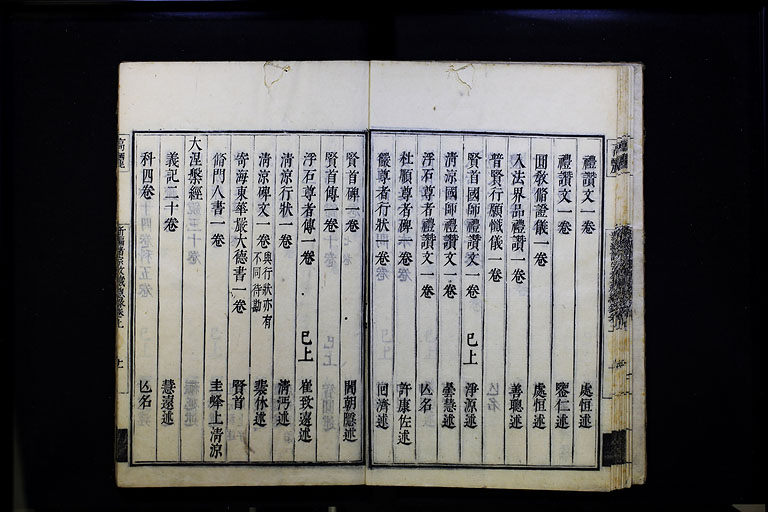 禮讚文一卷 處恒述
禮讚文一卷 鑒仁述
圓敎脩證儀一卷 處恒述
入法界品禮讚一卷 善聰述
普賢行願懺儀一卷
賢首國師禮讚文一卷 已上 淨源述
清涼國師禮讚文一卷 慧述
浮石尊者禮讚文一卷 亾名
杜順尊者碑一卷 許康佐述
儼尊者行狀一卷 同濟述
賢首碑一卷 閻朝隱述
賢首傳一卷
浮石尊者傳一卷 已上 崔致遠述
清涼行狀一卷 清沔述
清涼碑文一卷 與行狀亦有不同待勘 裴休述
寄海東華嚴大德書一卷 賢首
脩門人書一卷 圭峰上清涼
大涅槃經
義記二十卷 慧遠述
科四卷 亾名